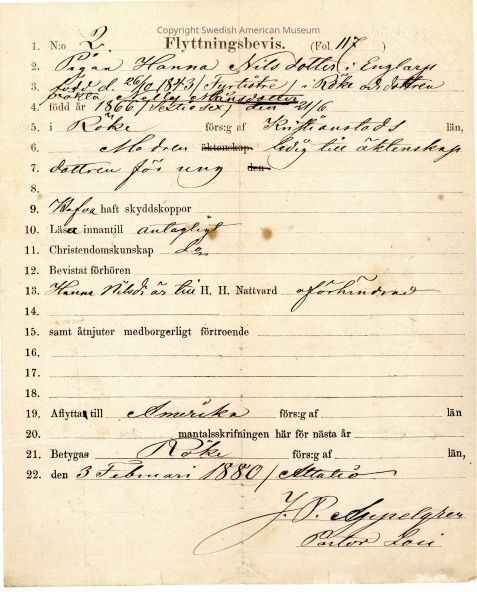 Copyright Swedish American Museum
1. N:o 2. Flyttningsbevis. (Fol. 117)
2. Pigan Hanna Nils dotter i Englarp
3. född d. 26/10 1843 / Fyrtiotre / i Röke och dottren
4. född år 1866 / Sextiosex / den 21/6
5. i Röke förs:g af Kristianstads län,
6. Modren äktenskap ledig till äktenskap
7. dottren för ung den
8.
9. Hafva haft skyddskoppor
10. Läsa innantill antagligt
11. Christendomskunskap
12. Bevistat förhören
13. Hanna Nilsdr är till H. H. Nattvard oförhindrad
14.
15. samt åtnjuter medborgerligt förtroende
16.
17.
18.
19. Aflyttat till Amerika förs:g af län
20. mantalsskrifningen här för nästa år
21. Betygas Röke förs:g af län,
22. den 3 Februari 1880 / Attatio
J. P. Appelgren
Pastor Loci